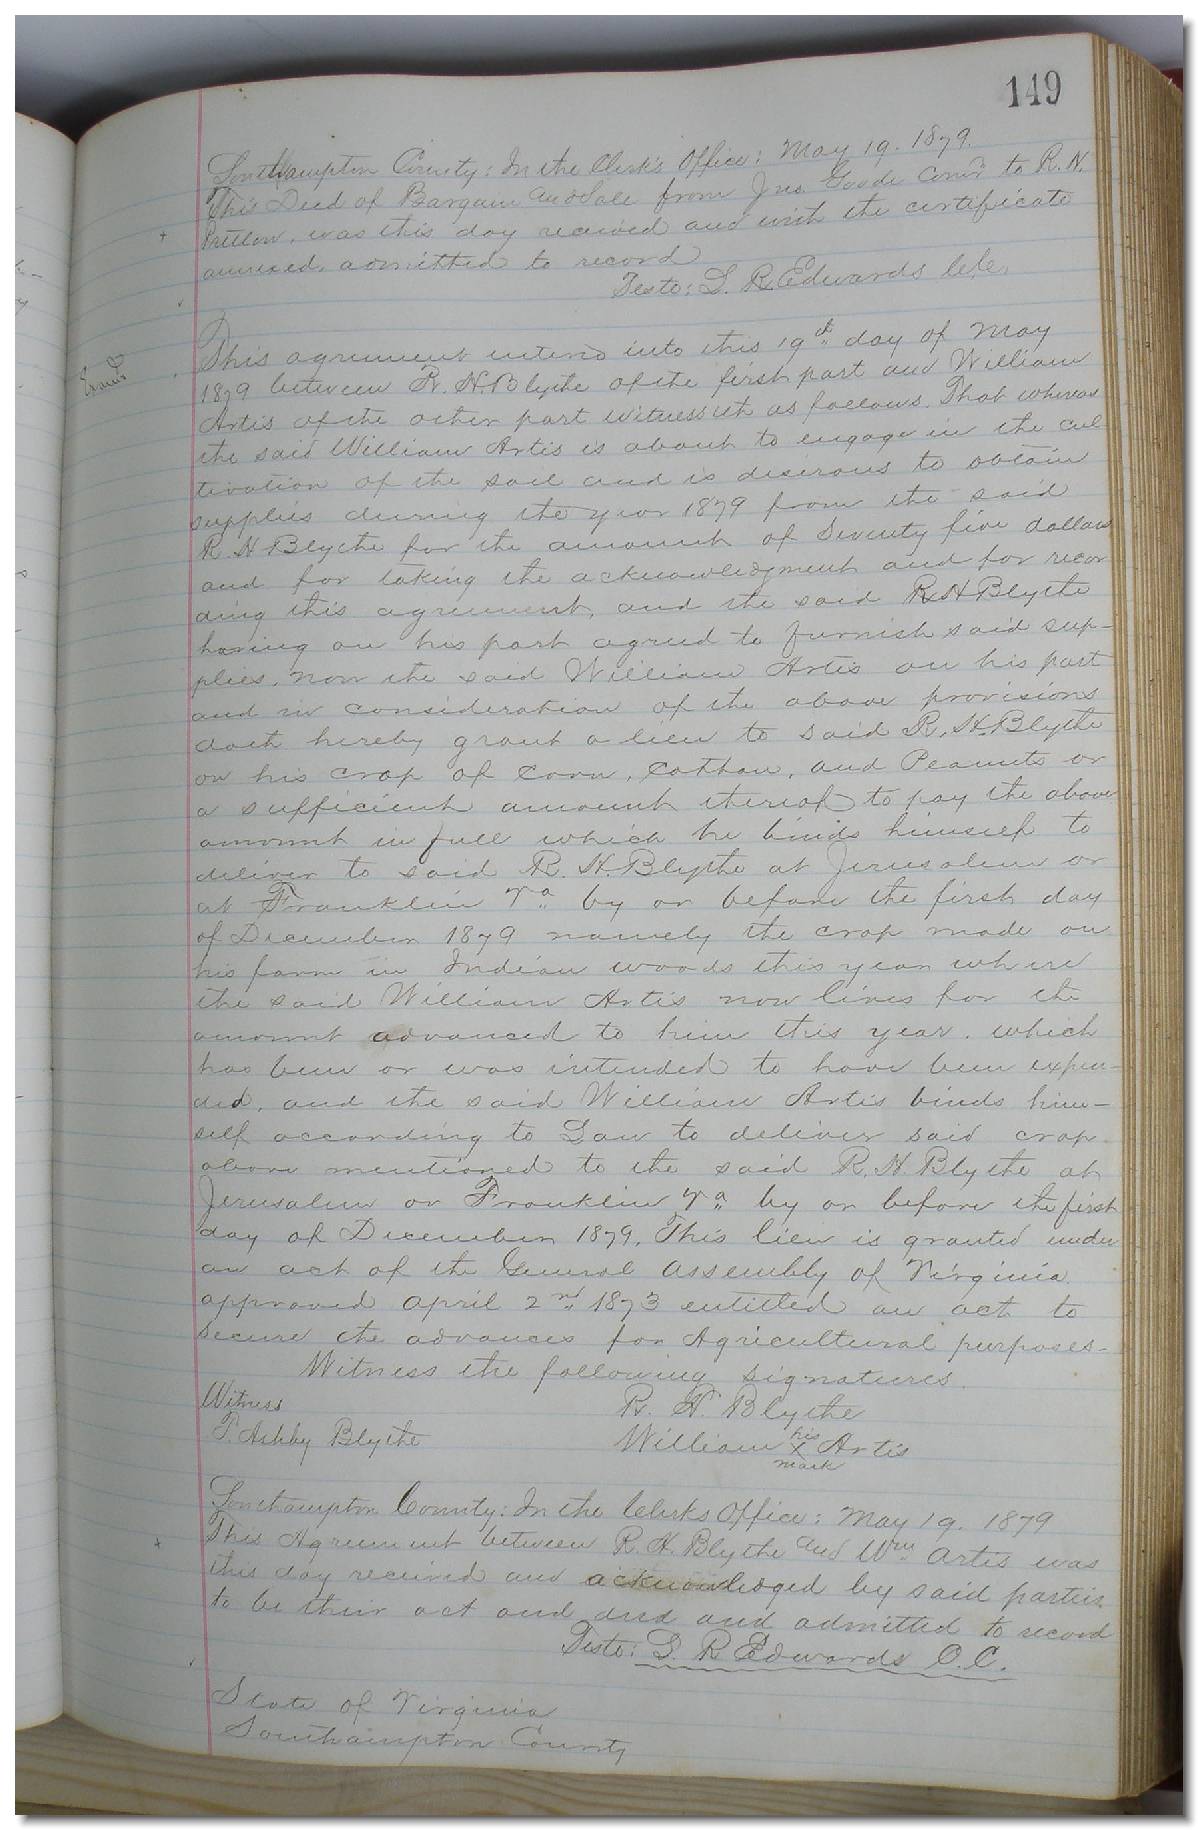 149
Southampton County: In the Clerk's Office: May 19. 1879.
This Deed of Bargain and Sale from Jno. Goode Comr to R. N.
Pretlow, was this day received and with the certificate
annexed, admitted to record
Teste: L. R. Edwards C.C.
This agreement entered into this 19th day of May
Examd
1879 between R. H. Blythe of the first part and William
Artis of the other part witnesseth as follows. That whereas
the said William Artis is about to engage in the cul
tivation of the soil and is desirous to obtain
supplies during the year 1879 from the said
R. H Blythe for the amount of Seventy five dollars
and for taking the acknowledgment and for recor
ding this agreement, and the said R H Blythe
having on his part agreed to furnish said sup-
plies. now the said William Artis on his part
and in consideration of the above provisions
doth hereby grant a lien to said R. H. Blythe
on his crop of Corn, Cotton, and Peanuts or
a sufficient amount thereof to pay the above
amount in full which he binds himself to
deliver to said R. H. Blythe at Jerusalem or
at Franklin Va by or before the first day
of December 1879 namely the crop made on
his farm in Indian woods this year where
the said William Artis now lives for the
amount advanced to him this year. which
has been or was intended to have been expen-
ded. and the said William Artis binds him-
self according to Law to deliver said crop
above mentioned to the said R. H. Blythe at
Jerusalem or Franklin Va by or before the first
day of December 1879. This lien is granted under
an act of the General Assembly of Virginia
approved April 2nd 1873 entitled an act to
secure the advances for Agricultural purposes-
Witness the following signatures.
Witness
R. H. Blythe
T. Ashby Blythe
William his X mark Artis
Southampton County: In the Clerks Office: May 19. 1879
This Agreement between R. H. Blythe and Wm Artis was
this day received and acknowledged by said parties
to be their act and deed and admitted to record
Teste: L. R Edwards C.C.
State of Virginia
Southampton County